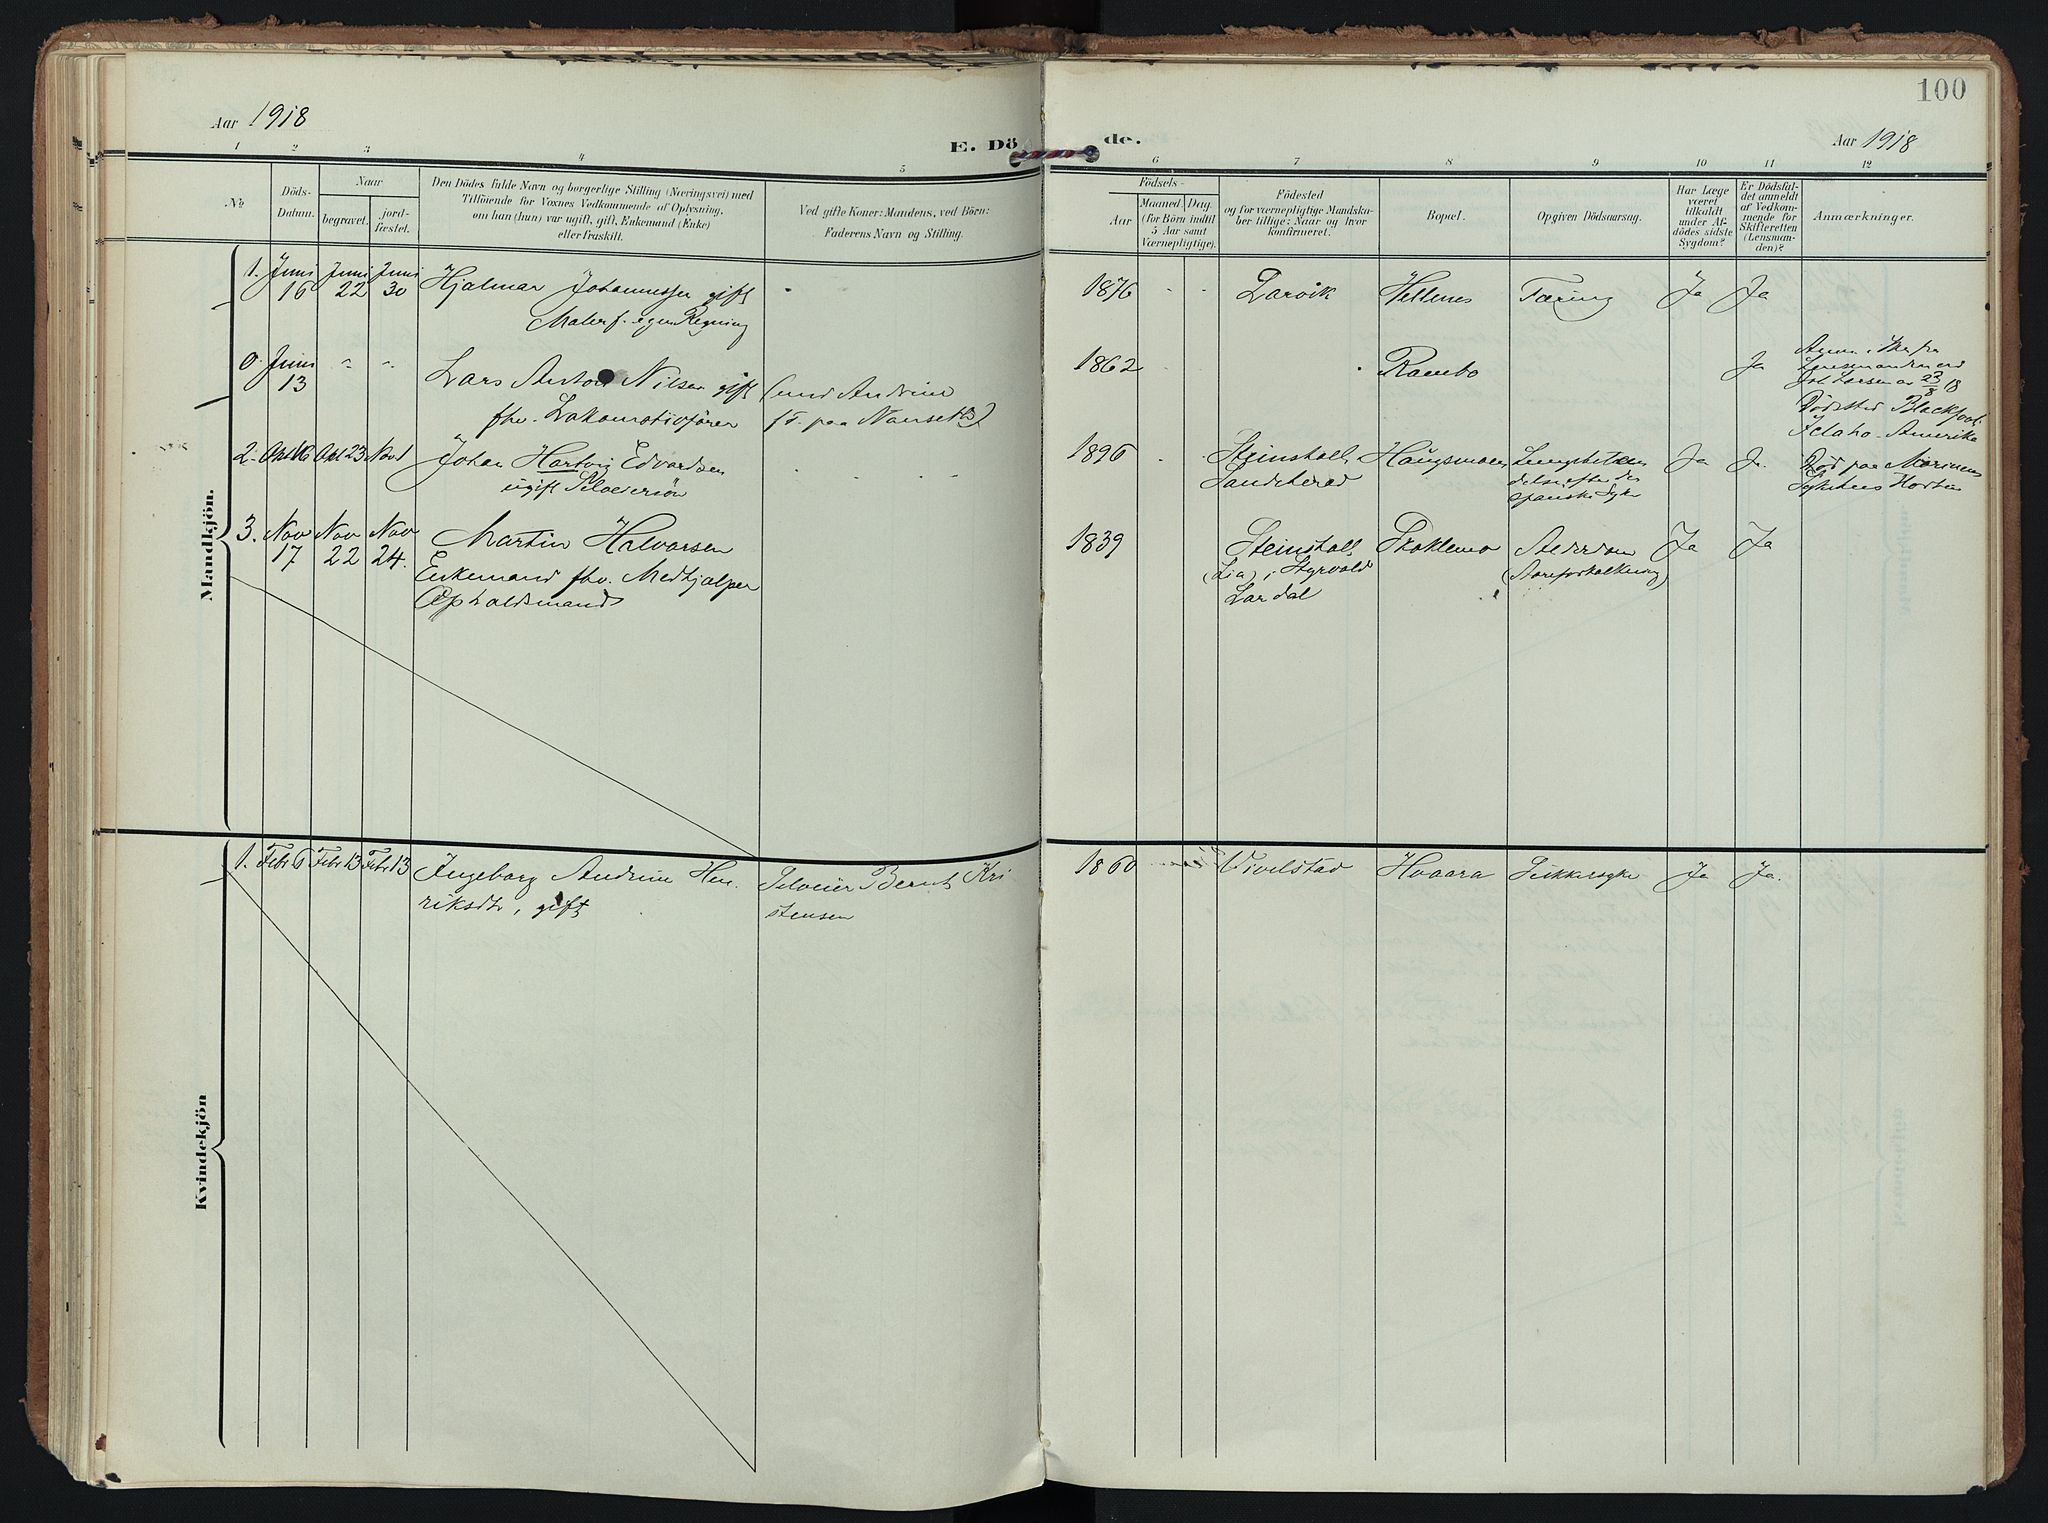 100
Aar 1918
E. Dö de.
Aar 1918
1 2 3 4 5 6 7 8 9 10 11 12
No
Döds-
Datum.
Naar
begravet.
jord-
fæstet.
Den Dödes fulde Navn og borgerlige Stilling (Næringsvei) med
Tilföiende for Voxnes Vedkommende af Oplysning,
om han (hun) var ugift, gift, Enkemand (Enke)
eller fraskilt.
Ved gifte Koner: Mandens, ved Börn:
Faderens Navn og Stilling.
Födsels-
Aar
Maaned. Dag.
(for Börn indtil
5 Aar samt
Værnepligtige).
Födested
og for værnepligtige Mandska-
ber tillige: Naar og hvor
konfirmeret.
Bopæl.
Opgiven Dödsaarsag.
Har Læge
været
tilkaldt
under Af-
dödes sidste
Sygdom?
Er Dödsfal-
det anmeldt
af Vedkom-
mende for
Skifteretten
(Lensman-
den)?
Anmærkninger.
Mandkjön.
1. Juni 16 Juni 22 Juni 30
Hjalmar Johannessen gift
Maler f. egen Regning
1876 Larvik Hellenes Tæring Ja Ja
0. Juni 13
Lars Anton Nilsen gift
fhv. Lokomotivfører
(med Andrine
f. paa Nanseth)
1862 Rambo Ja
Lensmanden ved
Larsen av 23/8 18
Dødssted Blackfoot
Idaho. Amerika
2. Okt 16 Okt 23 Nov 1
Johan Hartvig Edvardsen
ugift Selveiersøn
1896 Steinsholt
Sandeherad
Haugsmoen
Lungebeten
delse efter den
spanske Syke
Ja Ja.
Død paa Marinens
Sykehus Horten
3. Nov 17 Nov 22 Nov 24.
Martin Halvorsen
Enkemand fhv. Medhjælper
Opholdsmand
1839 Steinsholt
(Lia) i Styrvold
Lardal
Alderdom
(Aareforkalkning)
Ja Ja
Kvindekjön
1. Febr 6 Febr 13 Febr 13
Ingeborg Andrine Hen
riksdtr, gift
Selveier Bernt Kri
stensen
1860 Vivelstad Hvaara Sukkersyke Ja Ja.